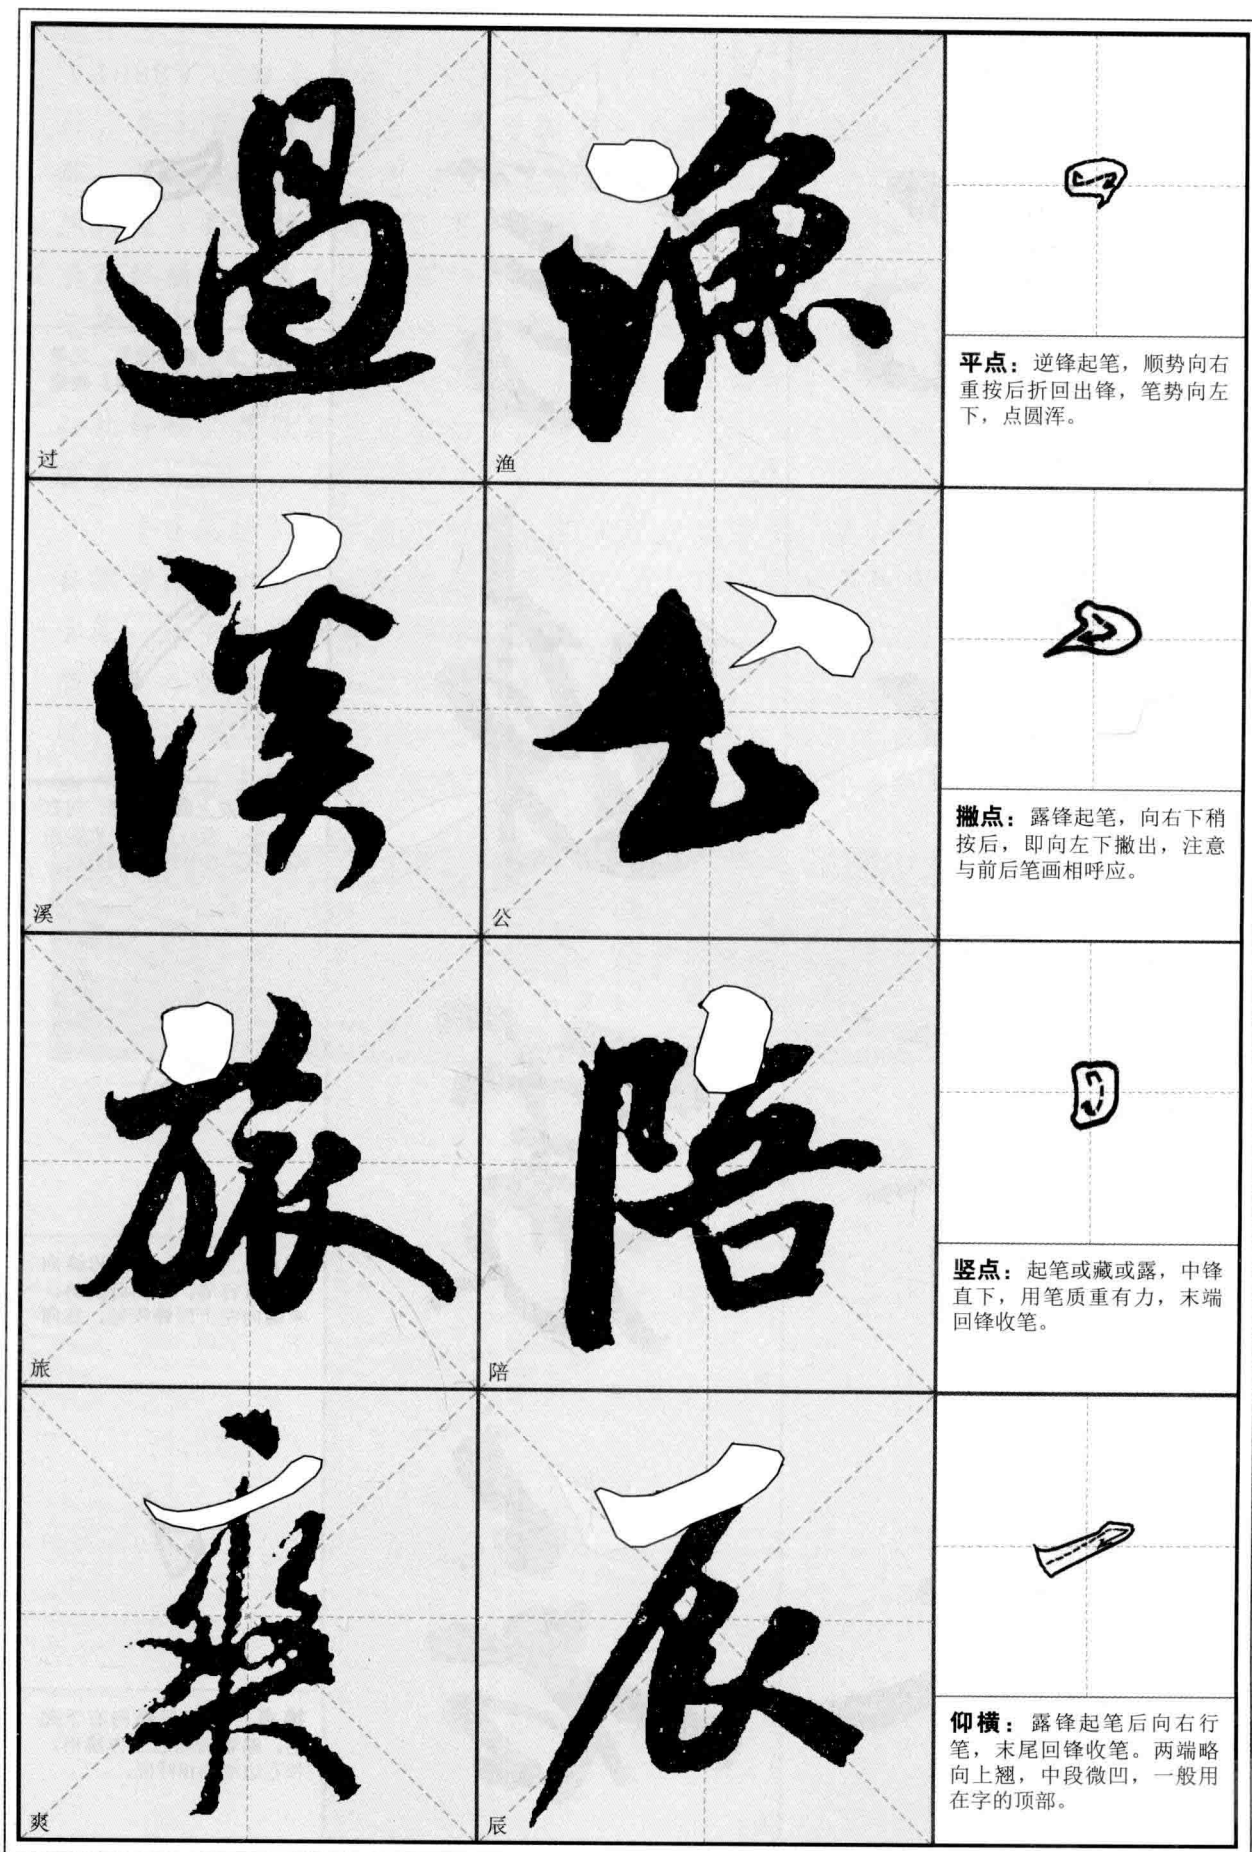 過
漁
过
渔
平点：逆锋起笔，顺势向右
重按后折回出锋，笔势向左
下，点圆浑。
溪
公
溪
公
撇点：露锋起笔，向右下稍
按后，即向左下撇出，注意
与前后笔画相呼应。
旅
陪
旅
陪
竖点：起笔或藏或露，中锋
直下，用笔质重有力，末端
回锋收笔。
爽
辰
爽
辰
仰横：露锋起笔后向右行
笔，末尾回锋收笔。两端略
向上翘，中段微凹，一般用
在字的顶部。